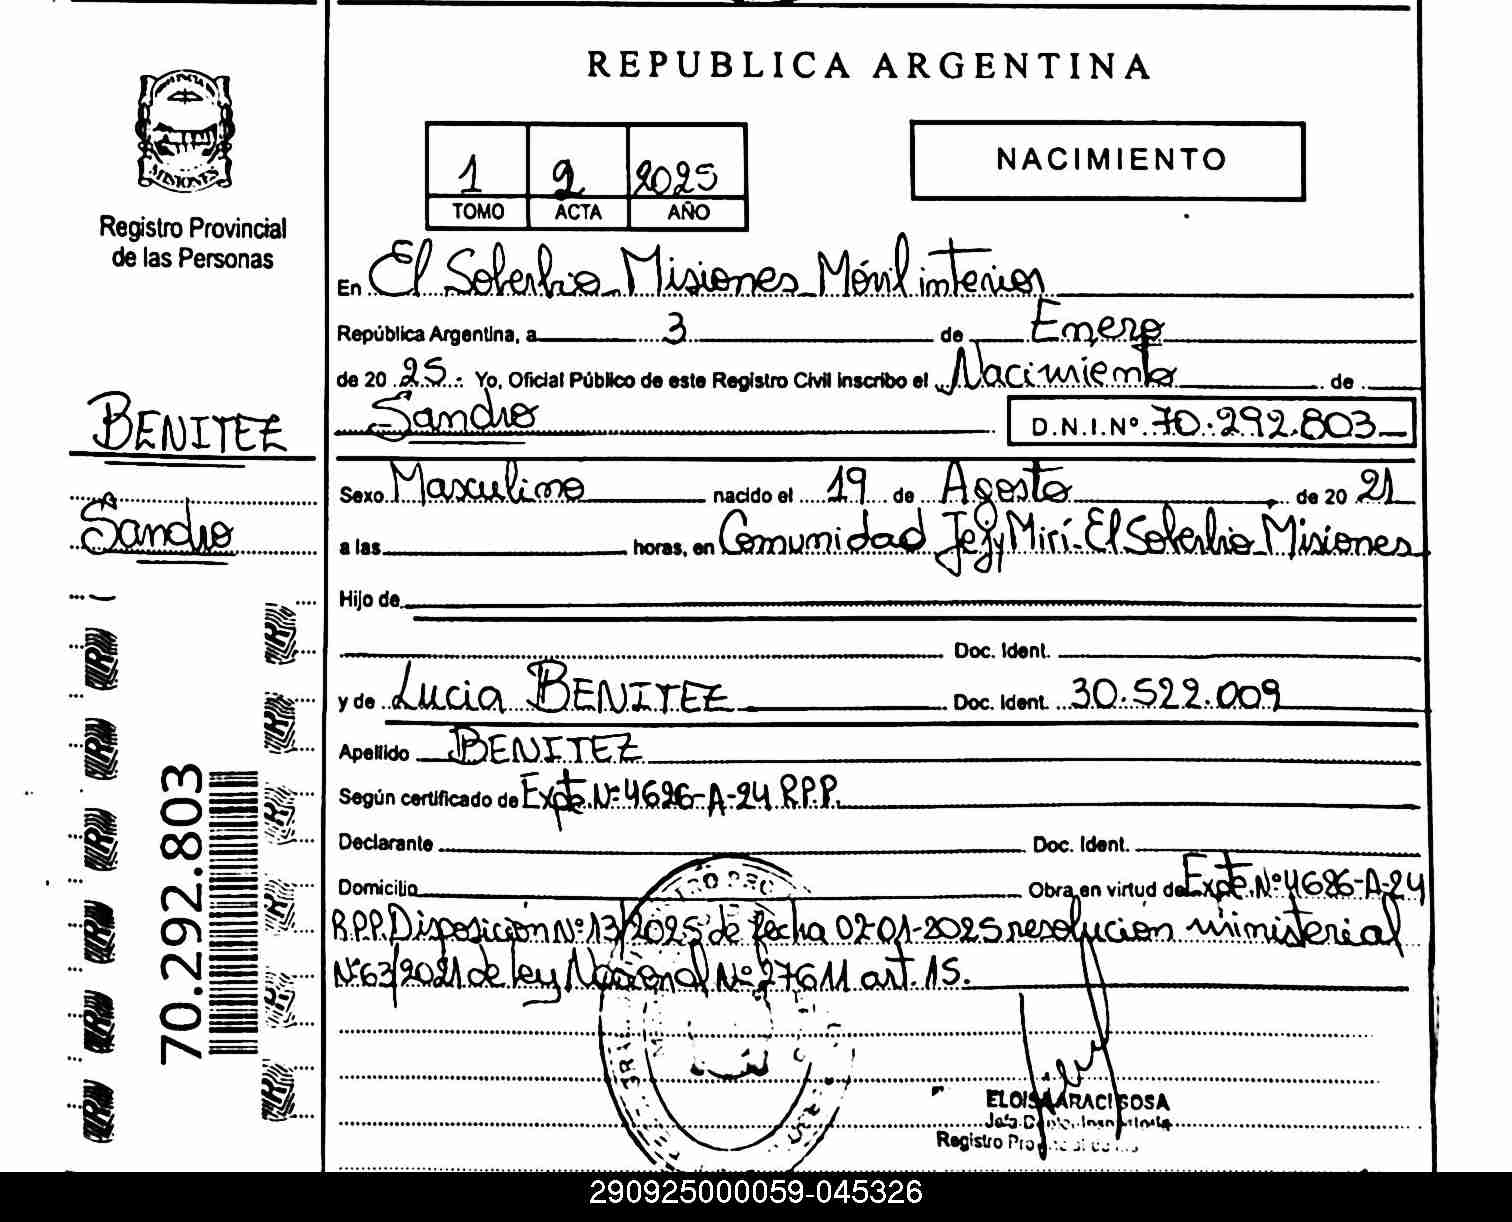 REPUBLICA ARGENTINA
MISIONES
Registro Provincial
de las Personas
1 2 2025
TOMO ACTA AÑO
NACIMIENTO
En El Soberbio Misiones Móvil interior
República Argentina, a 3 de Enero
de 2025. Yo, Oficial Público de este Registro Civil inscribo el Nacimiento de
Sandro D.N.I.Nº 70.292.803
BENITEZ
Sandro
Sexo Masculino nacido el 19 de Agosto de 2021
a las horas, en Comunidad Jejy Mirí-El Soberbio Misiones
Hijo de
Doc. Ident.
y de Lucia BENITEZ Doc. Ident. 30.522.009
Apellido BENITEZ
Según certificado de Expte. Nº 4686-A-24 R.P.P.
Declarante Doc. Ident.
Domicilio Obra en virtud de Expte. Nº 4686-A-24
R.P.P. Disposición Nº 13/2025 de fecha 02-01-2025 resolución ministerial
Nº 63/2021 de ley Nacional Nº 27611 art. 15.
70.292.803
ELOISA ARACI SOSA
Registro
290925000059-045326